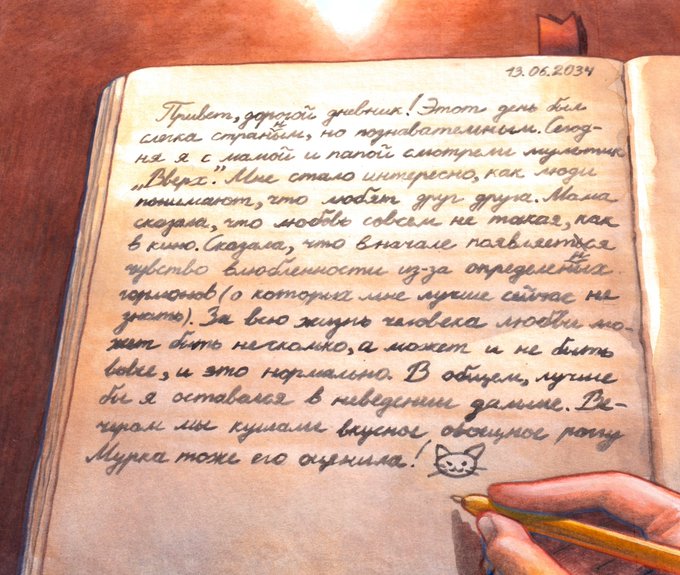 13.06.2034
Привет, дорогой дневник! Этот день был
слегка странным, но познавательным. Сегод-
ня я с мамой и папой смотрели мультик
„Вверх." Мне стало интересно, как люди
понимают, что любят друг друга. Мама
сказала, что любовь совсем не такая, как
в кино. Сказала, что вначале появляется
чувство влюбленности из-за определенных
гормонов (о которых мне лучше сейчас не
знать). За всю жизнь человека любви мо-
жет быть несколько, а может и не быть
вовсе, и это нормально. В общем, лучше
бы я оставался в неведении дальше. Ве-
чером мы кушали вкусное овощное рагу
Мурка тоже его оценила!